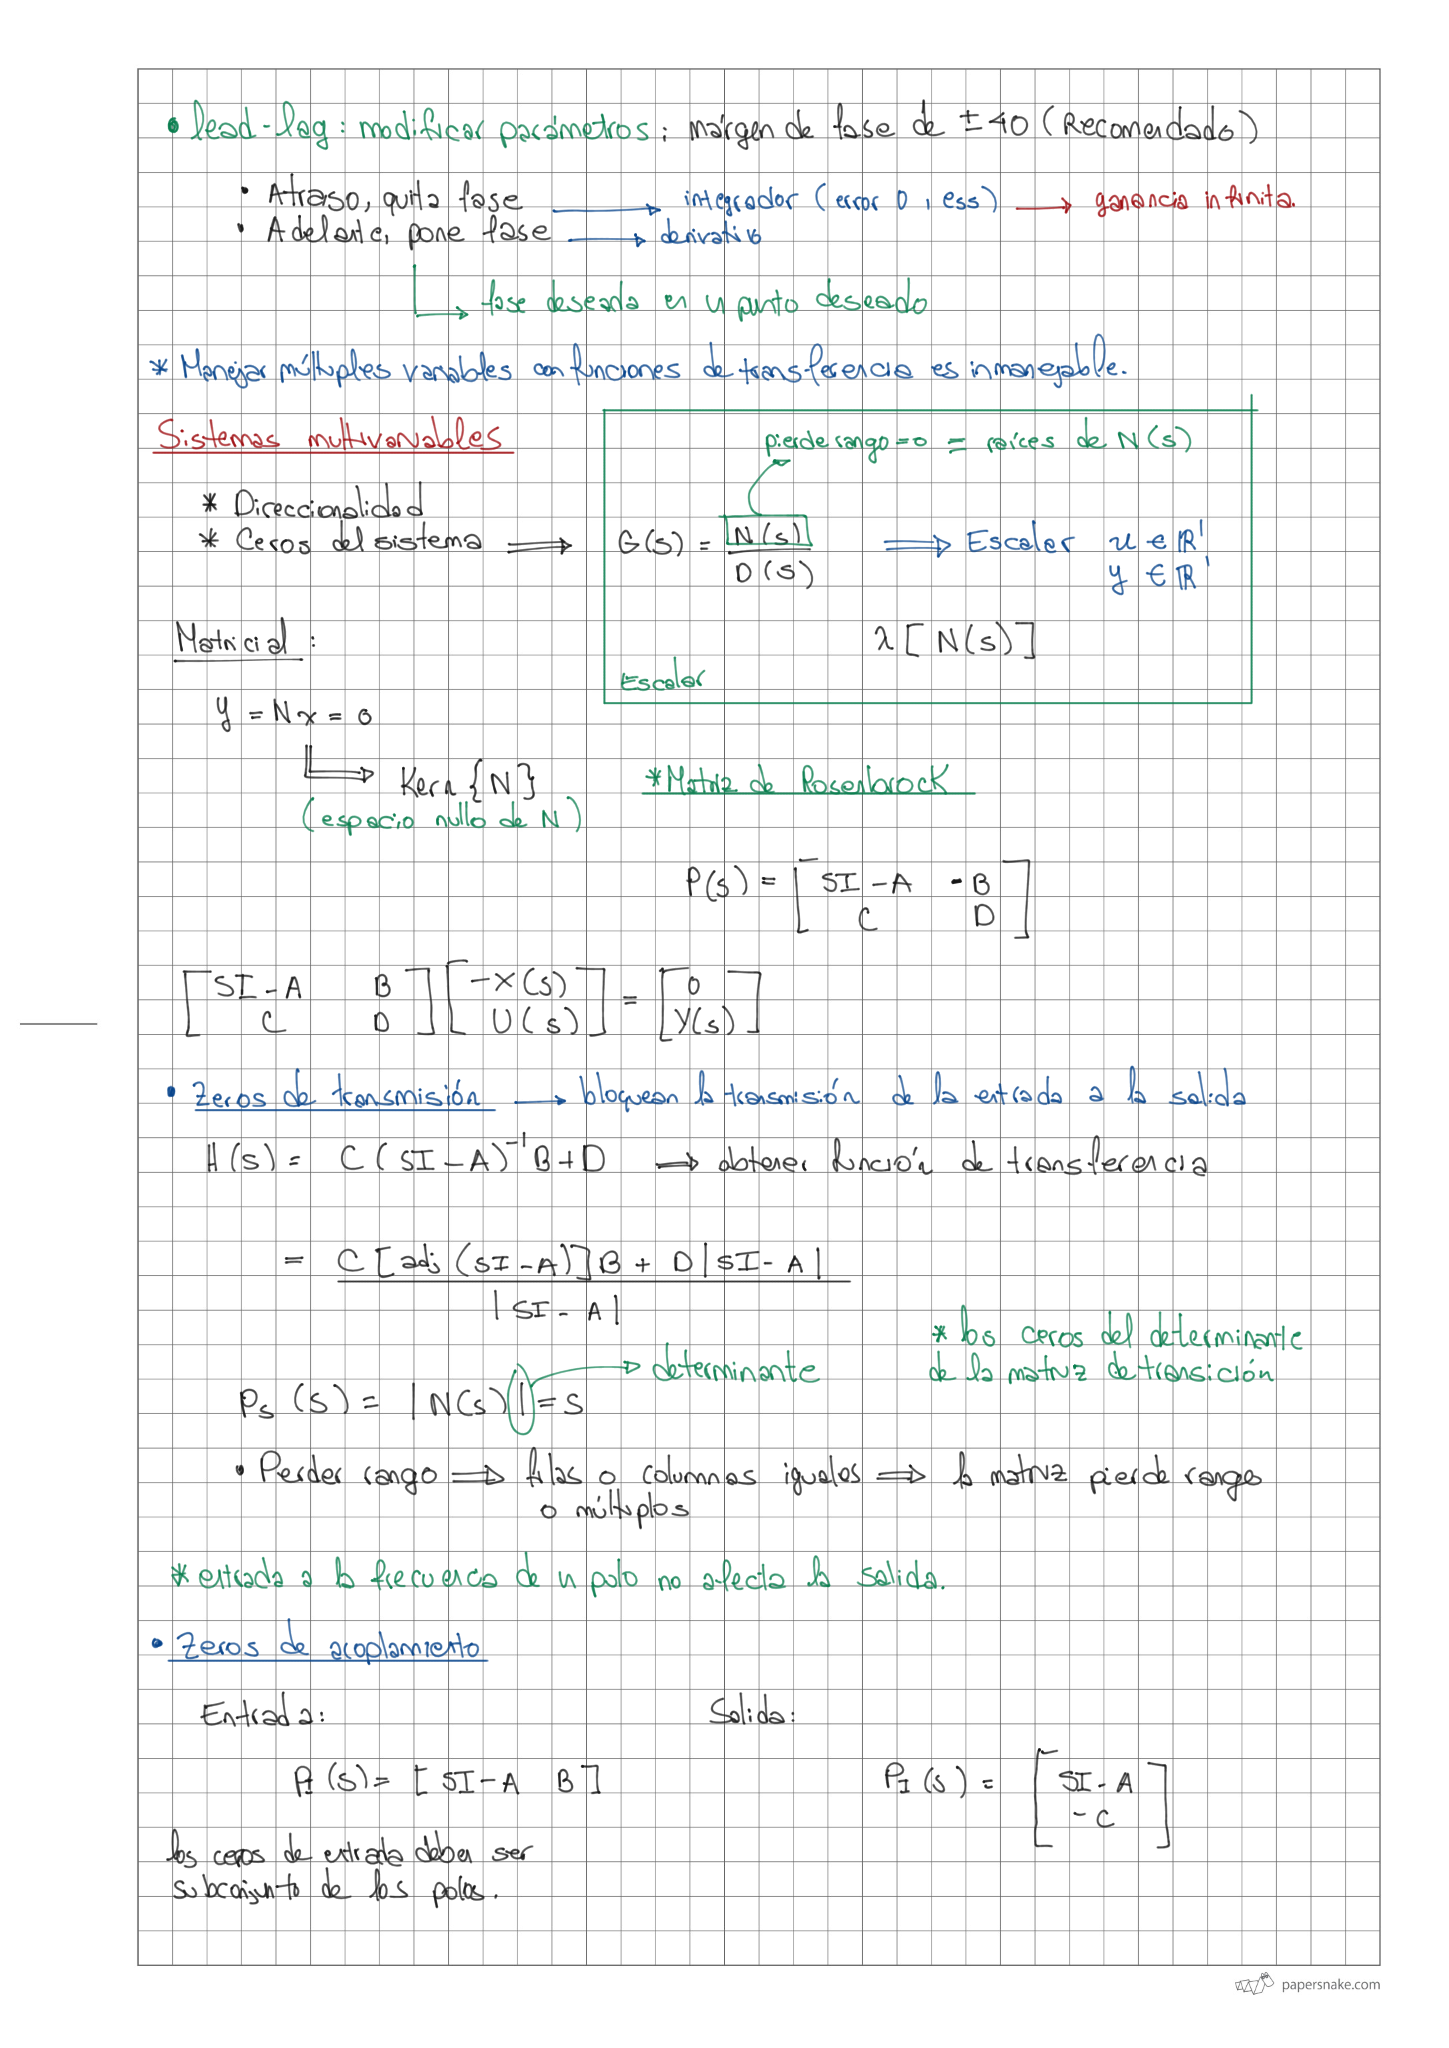 • lead-lag: modificar parámetros; márgen de fase de ±40 (Recomendado)
• Atraso, quita fase → integrador (error 0, ess) → ganancia infinita.
• Adelante, pone fase → derivativo
↳ fase deseada en un punto deseado
* Manejar múltiples variables con funciones de transferencia es inmanejable.
Sistemas multivariables
pierde rango = 0 = raíces de N(s)
* Direccionalidad
* Ceros del sistema ⇒ G(s) = N(s) / D(s) ⇒ Escalar u ∈ ℝ¹
y ∈ ℝ¹
Matricial:
λ[N(s)]
Escalar
y = Nx = 0
↳ Kern{N}
(espacio nullo de N)
*Matriz de Rosenbrock
P(s) = [ SI-A -B
C D ]
[ SI-A B
C D ] [ -X(s)
U(s) ] = [ 0
Y(s) ]
• Zeros de transmisión → bloquean la transmisión de la entrada a la salida
H(s) = C(SI-A)⁻¹B+D → obtener función de transferencia
= C[adj(SI-A)]B + D|SI-A|
|SI-A|
* los ceros del determinante
de la matriz de transición
→ determinante
Ps(s) = |N(s)| = s
• Perder rango ⇒ filas o columnas iguales ⇒ la matriz pierde rango
o múltiplos
* entrada a la frecuencia de un polo no afecta la salida.
• Zeros de acoplamiento
Entrada: Salida:
P_I(s) = [ SI-A B ]
P_I(s) = [ SI-A
-C ]
los ceros de entrada deben ser
subconjunto de los polos.
papersnake.com